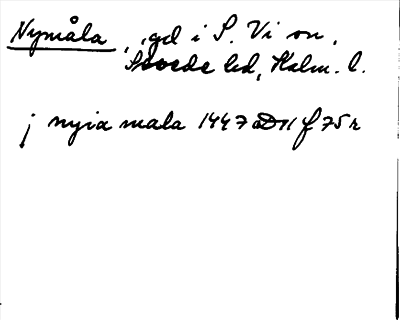 Nymåla, gd i S. Vi sn,
Sevede hd, Kalm. l.
j nyia mala 1447 D 11 f 75 r